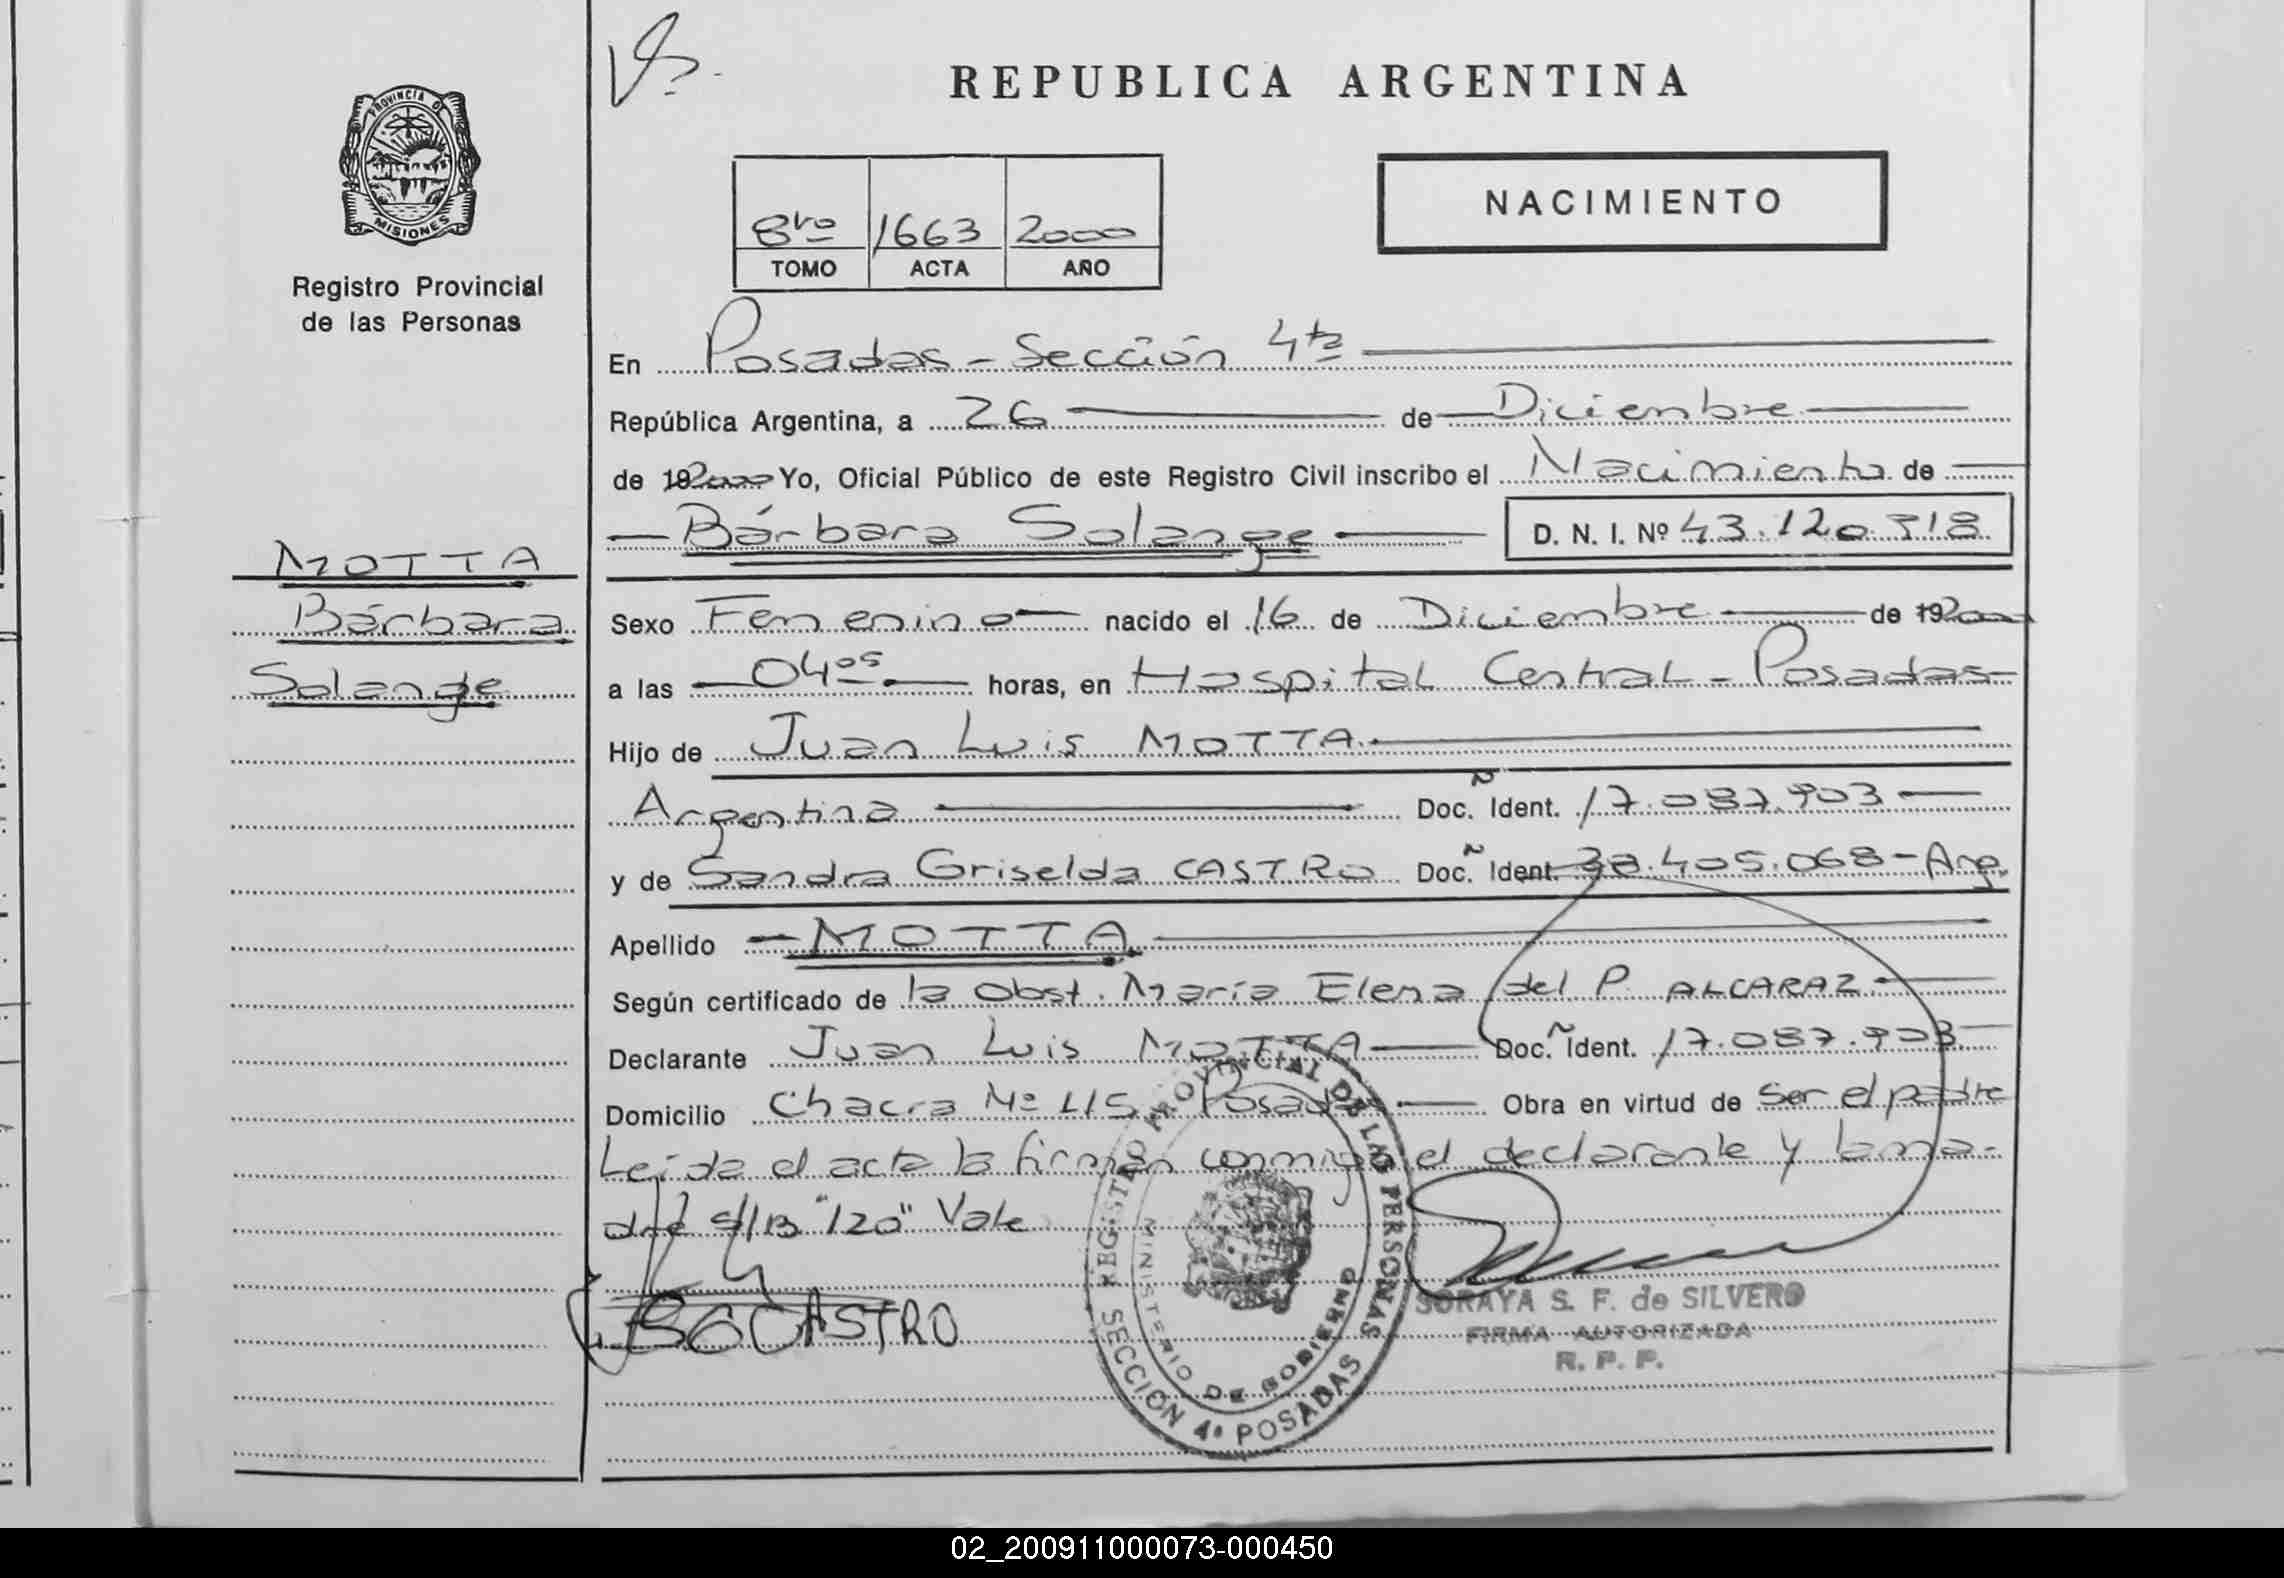 REPUBLICA ARGENTINA
PROVINCIA D
MISIONES
Registro Provincial
de las Personas
8vo 1663 2000
TOMO ACTA AÑO
NACIMIENTO
En Posadas - Sección 4ta
República Argentina, a 26 de Diciembre
de 192000 Yo, Oficial Público de este Registro Civil inscribo el Nacimiento de
Bárbara Solange D. N. I. Nº 43.120.318
MOTTA
Bárbara
Solange
Sexo Femenino nacido el 16 de Diciembre de 192000
a las 04 05 horas, en Hospital Central - Posadas -
Hijo de Juan Luis MOTTA
Argentina Doc. Ident. 17.087.903
y de Sandra Griselda CASTRO Doc. Ident. 38.405.068 - Arg.
Apellido MOTTA
Según certificado de la Obst. María Elena del P. ALCARAZ
Declarante Juan Luis MOTTA Doc. Ident. 17.087.903
Domicilio Chacra Nº 115 Posadas Obra en virtud de ser el padre
Leída el acta la firman conmigo el declarante y la ma-
dre S/B "120" Vale
CASTRO
REGISTRO PROVINCIAL DE LAS PERSONAS
MINISTERIO DE GOBIERNO
SECCION 4ª POSADAS
SORAYA S. F. de SILVERO
FIRMA AUTORIZADA
R. P. P.
02_200911000073-000450